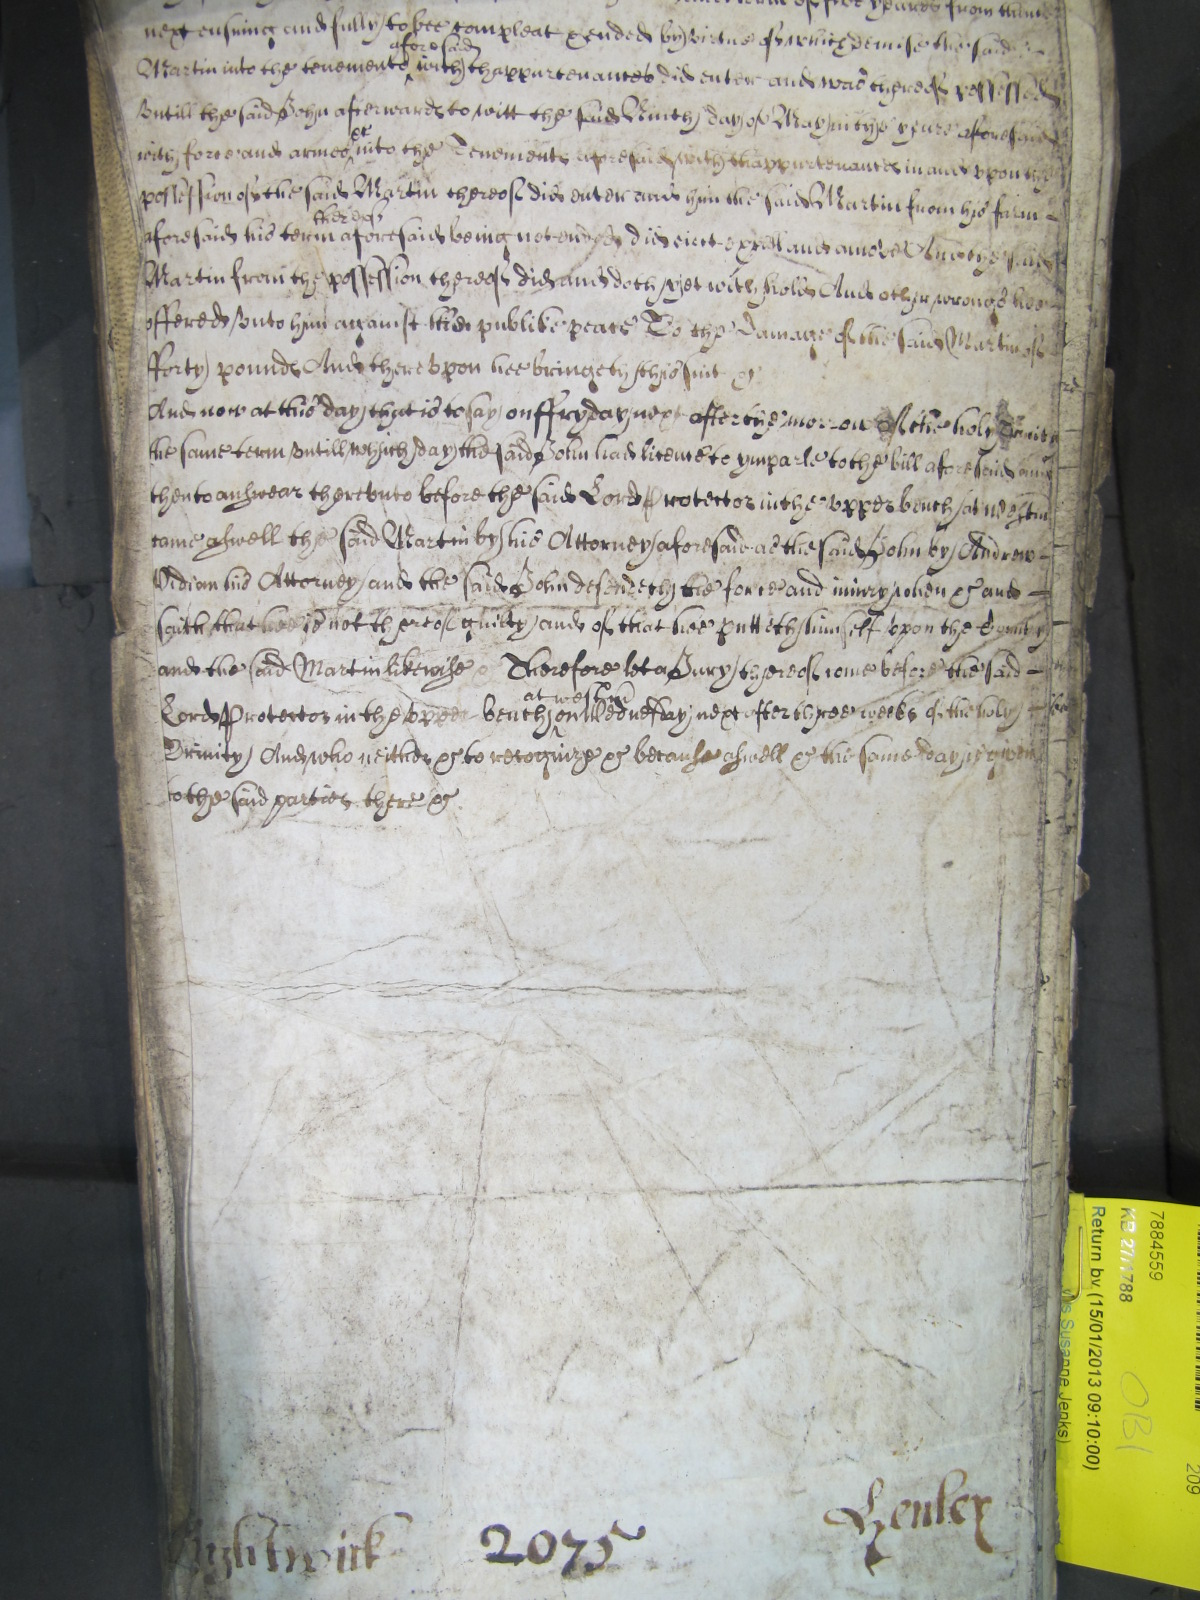 terme of five yeares from thence
next ensuing and fully to bee compleat & ended by virtue of which demise the said
Martin into the tenements aforesaid with thappurtenances did enter and was thereof possessed
Untill the said John afterwards to witt the said Ninth day of May in the yeare aforesaid
with force and armes &c into the Tenements aforesaid with thappurtenances in and upon the
possession of the said Martin thereof did enter and him the said Martin from his farme
aforesaid his terme aforesaid thereof being not ended did eject expell and amove And the said
Martin from the possession thereof did and doth yet withhold And other wronges hee
offered unto him against the publike peace To the Damage of the said Martin of
fforty pounds And thereupon hee bringeth this suit &c
And now at this day that is to say on ffryday next after the morrow of the holy Trinity
the same term untill which day the said John had licence to imparle to the bill aforesaid and
then to answear thereunto before the said Lord Protector in the upper bench at Westm
came aswell the said Martin by his Attorney aforesaid as the said John by Andrew
Vidian his Attorney and the said John defendeth the force and iniury when &c and
saith that hee is not thereof guilty and of that hee putteth himself upon the Country
and the said Martin likewise &c Therefore let a Jury thereof come before the said
Lord Protector in the upper bench at Westm on Wednesday next after three weeks of the holy
Trinity And who neither &c to recognize &c because aswell &c the same day is given
to the said parties there &c
2075
Henley
7884559
KB 27/1788
Return by (15/01/2013 09:10:00)
Susanne Jenks)
OBI
209